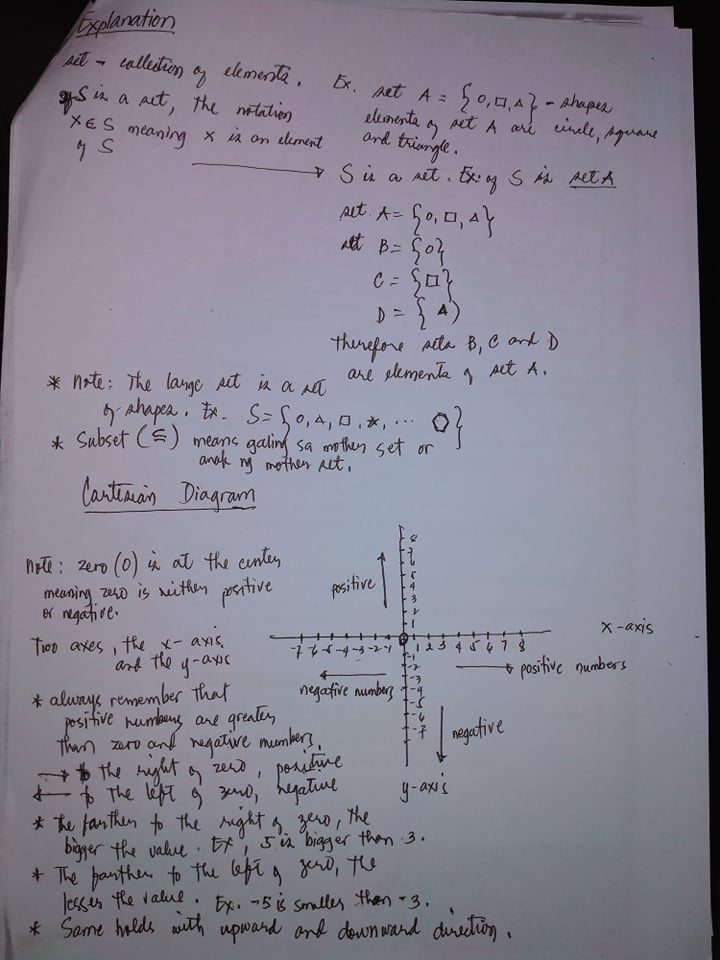 Explanation
set → collection of elements.
If S is a set, the notation
x ∈ S meaning x is an element
of S
Ex. set A = {○, □, △} - shapes
elements of set A are circle, square
and triangle.
→ S is a set. Ex. of S is set A
set A = {○, □, △}
set B = {○}
C = {□}
D = {△}
therefore sets B, C and D
are elements of set A.
* Note: The large set is a set
of shapes. Ex. S = {○, △, □, ☆, ... ⬡}
* Subset (⊆) means galing sa mother set or
anak ng mother set.
Cartesian Diagram
Note: zero (0) is at the center
meaning zero is neither positive
or negative.
Two axes, the x-axis
and the y-axis
* always remember that
positive numbers are greater
than zero and negative numbers.
→ to the right of zero, positive
← to the left of zero, negative
* The farther to the right of zero, the
bigger the value. Ex, 5 is bigger than 3.
* The farther to the left of zero, the
lesser the value. Ex. -5 is smaller than -3.
* Same holds with upward and downward direction.
positive
8
7
6
5
4
3
2
1
-7 -6 -5 -4 -3 -2 -1 0 1 2 3 4 5 6 7 8
x-axis
negative numbers
positive numbers
-1
-2
-3
-4
-5
-6
-7
negative
y-axis